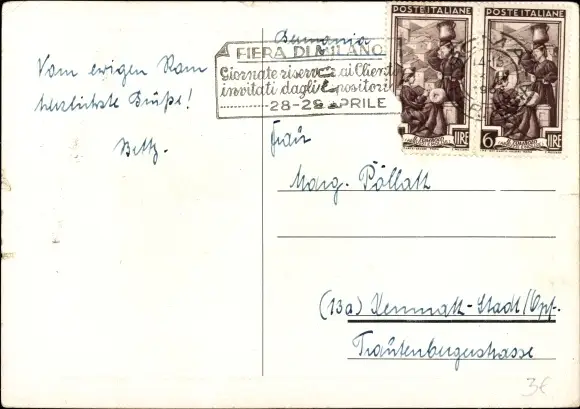 Vom ewigen Rom
herzlichste Grüße!
Betty.
Germania
FIERA DI MILANO
Giornate riservate ai Clienti
invitati dagli Espositori
28-29 APRILE
POSTE ITALIANE
LIRE
POSTE ITALIANE
6 LIRE
Frau
Marg. Pöllath
(13a) Kemnath-Stadt/Opf.
Trautenbergerstrasse
3€